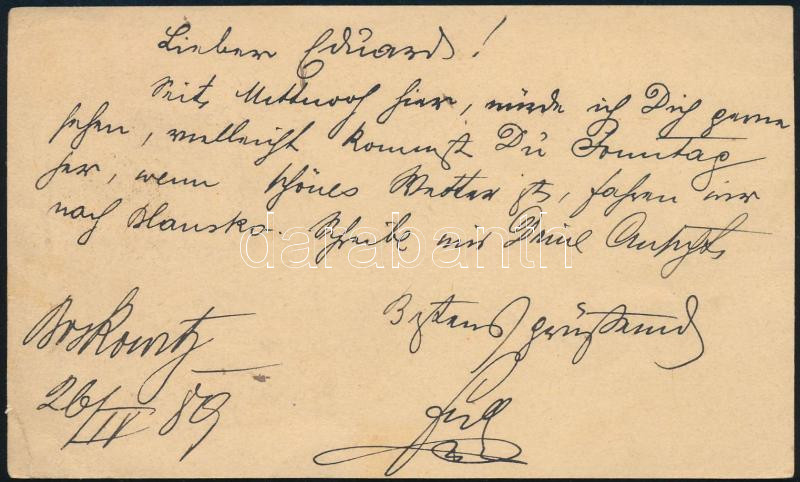 Lieber Eduard!
Seit Mittwoch hier, würde ich Dich gerne
sehen, vielleicht kommst Du Sonntag
her, wenn schönes Wetter ist, fahren wir
nach Blansko. Schreibe mir Deine Ansicht.
darabanth
Bestens grüssend
Boskowitz
26/IV 89